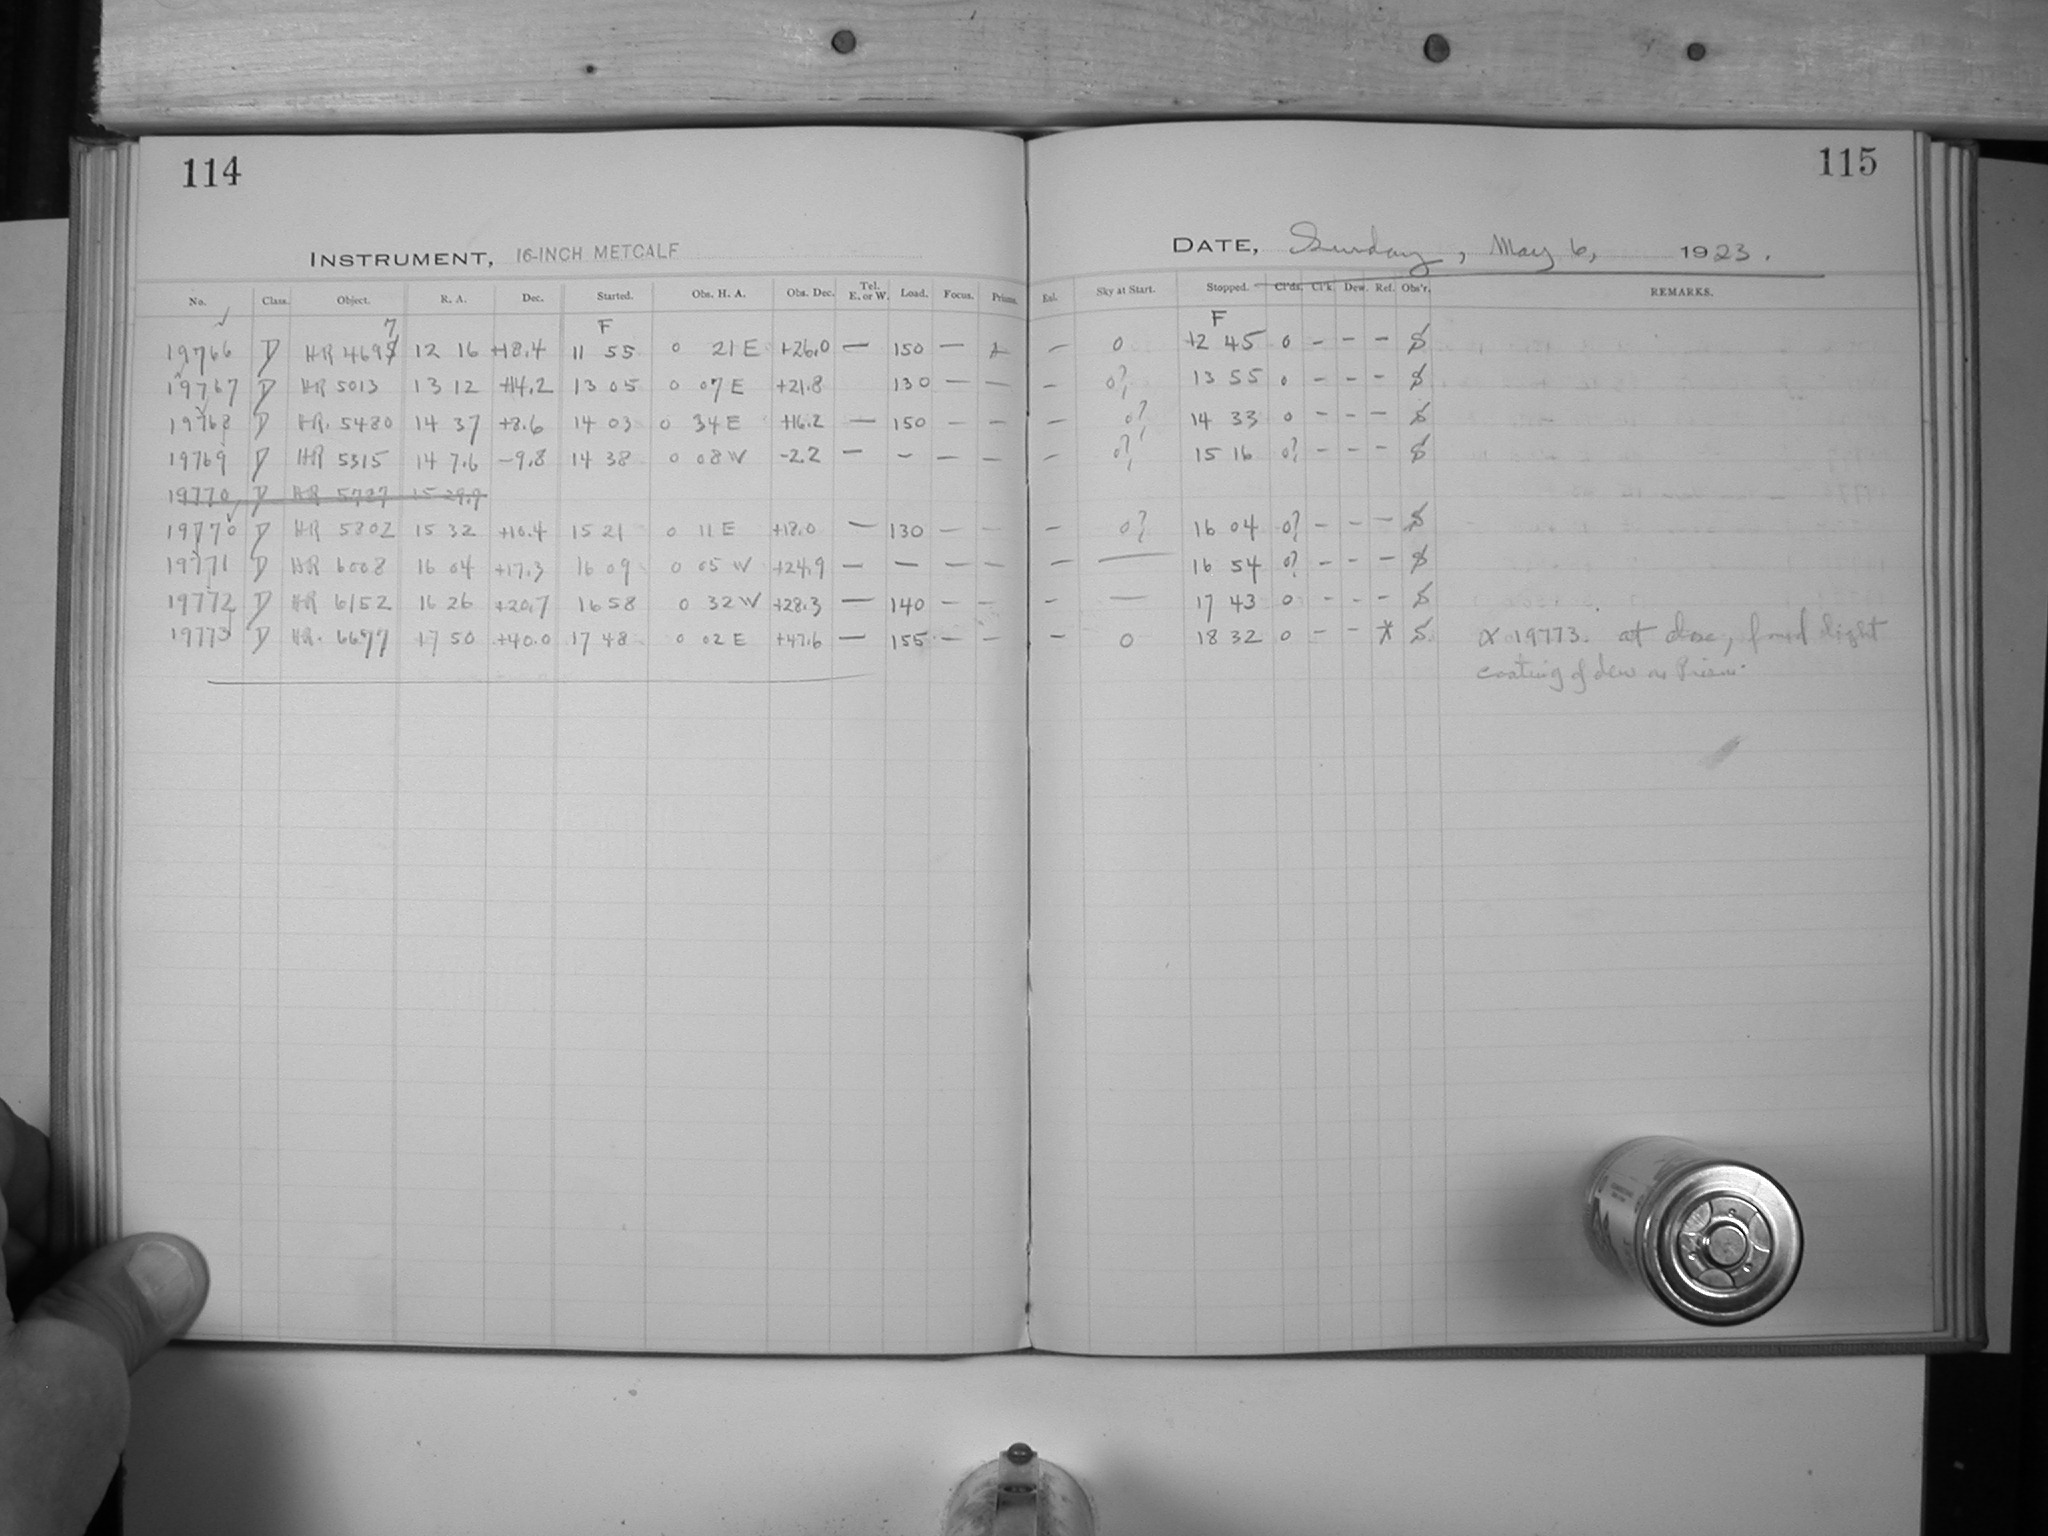 114
115
INSTRUMENT, 16-INCH METCALF
DATE, Sunday, May 6, 1923.
No. Class. Object. R. A. Dec. Started. Obs. H. A. Obs. Dec. Tel. E. or W. Load. Focus. Prisms. Eal. Sky at Start. Stopped. Cl'ds. Cl'k. Dew. Ref. Obs'r. REMARKS.
7 F F
19766 D HR 4695 12 16 +18.4 11 55 0 21 E +26.0 — 150 — — 0 12 45 0 - - - S
19767 D HR 5013 13 12 +14.2 13 05 0 07 E +21.8 130 — — — 0? 13 55 0 - - - S
19768 D HR. 5480 14 37 +8.6 14 03 0 34 E +16.2 — 150 — — — 0? 14 33 0 - - - S
19769 D HR 5315 14 7.6 -9.8 14 38 0 08 W -2.2 — — — — — 0? 15 16 0? - - - S
19770 D HR 5727 15 29.9
19770 D HR 5802 15 32 +10.4 15 21 0 11 E +18.0 — 130 — — — 0? 16 04 0? - - - S
19771 D HR 6008 16 04 +17.3 16 09 0 05 W +24.9 — — — — — — 16 54 0? - - - S
19772 D HR 6152 16 26 +20.7 16 58 0 32 W +28.3 — 140 — — — — 17 43 0 - - - S
19773 D HR. 6697 17 50 +40.0 17 48 0 02 E +47.6 — 155 — — — 0 18 32 0 - - * S. 19773. at close, found light
coating of dew on Prism.